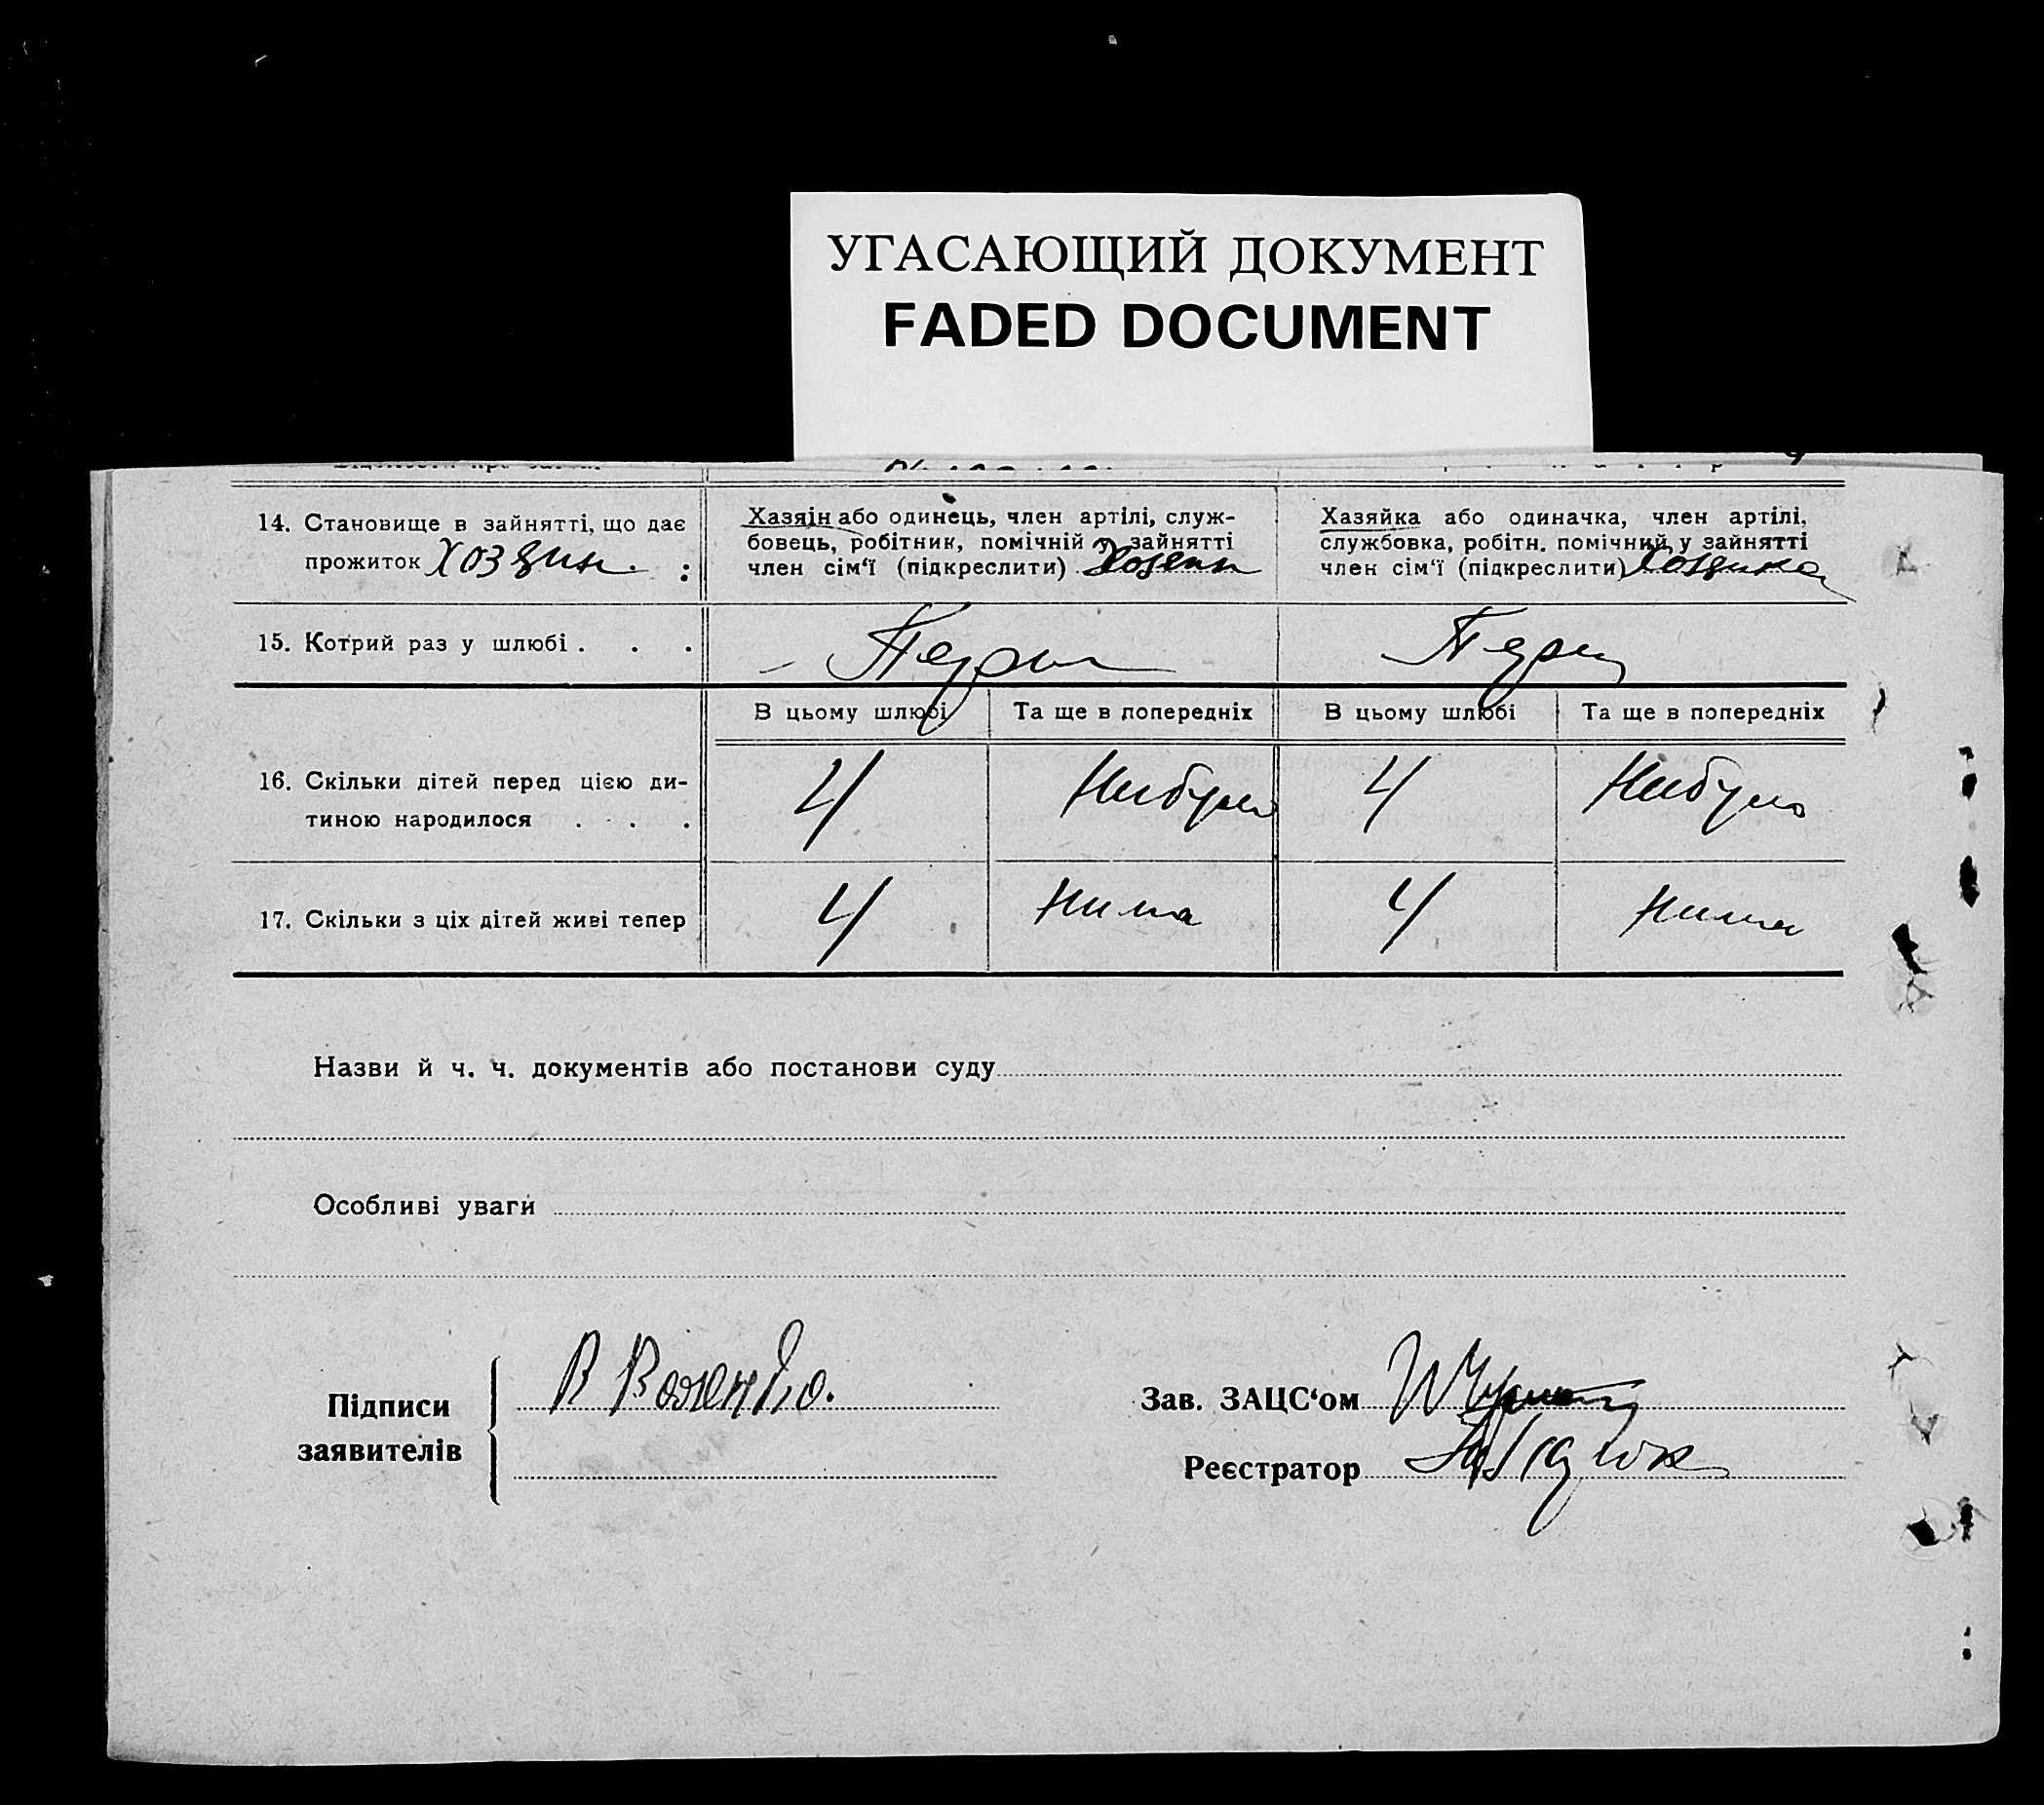 УГАСАЮЩИЙ ДОКУМЕНТ
FADED DOCUMENT
14. Становище в зайнятті, що дає
прожиток Хозяин. :
Хазяїн або одинець, член артілі, служ-
бовець, робітник, помічній у зайнятті
член сім'ї (підкреслити) Хозяин
Хазяйка або одиначка, член артілі,
службовка, робітн. помічний у зайнятті
член сім'ї (підкреслити) Хозяика
15. Котрий раз у шлюбі . . .
Перш
Перш
В цьому шлюбі
Та ще в попередніх
В цьому шлюбі
Та ще в попередніх
16. Скільки дітей перед цією ди-
тиною народилося . . .
4
Нибуло
4
Нибуло
17. Скільки з ціх дітей живі тепер
4
Нима
4
Нима
Назви й ч. ч. документів або постанови суду
Особливі уваги
Підписи
заявителів
В
Зав. ЗАЦС'ом
Реєстратор